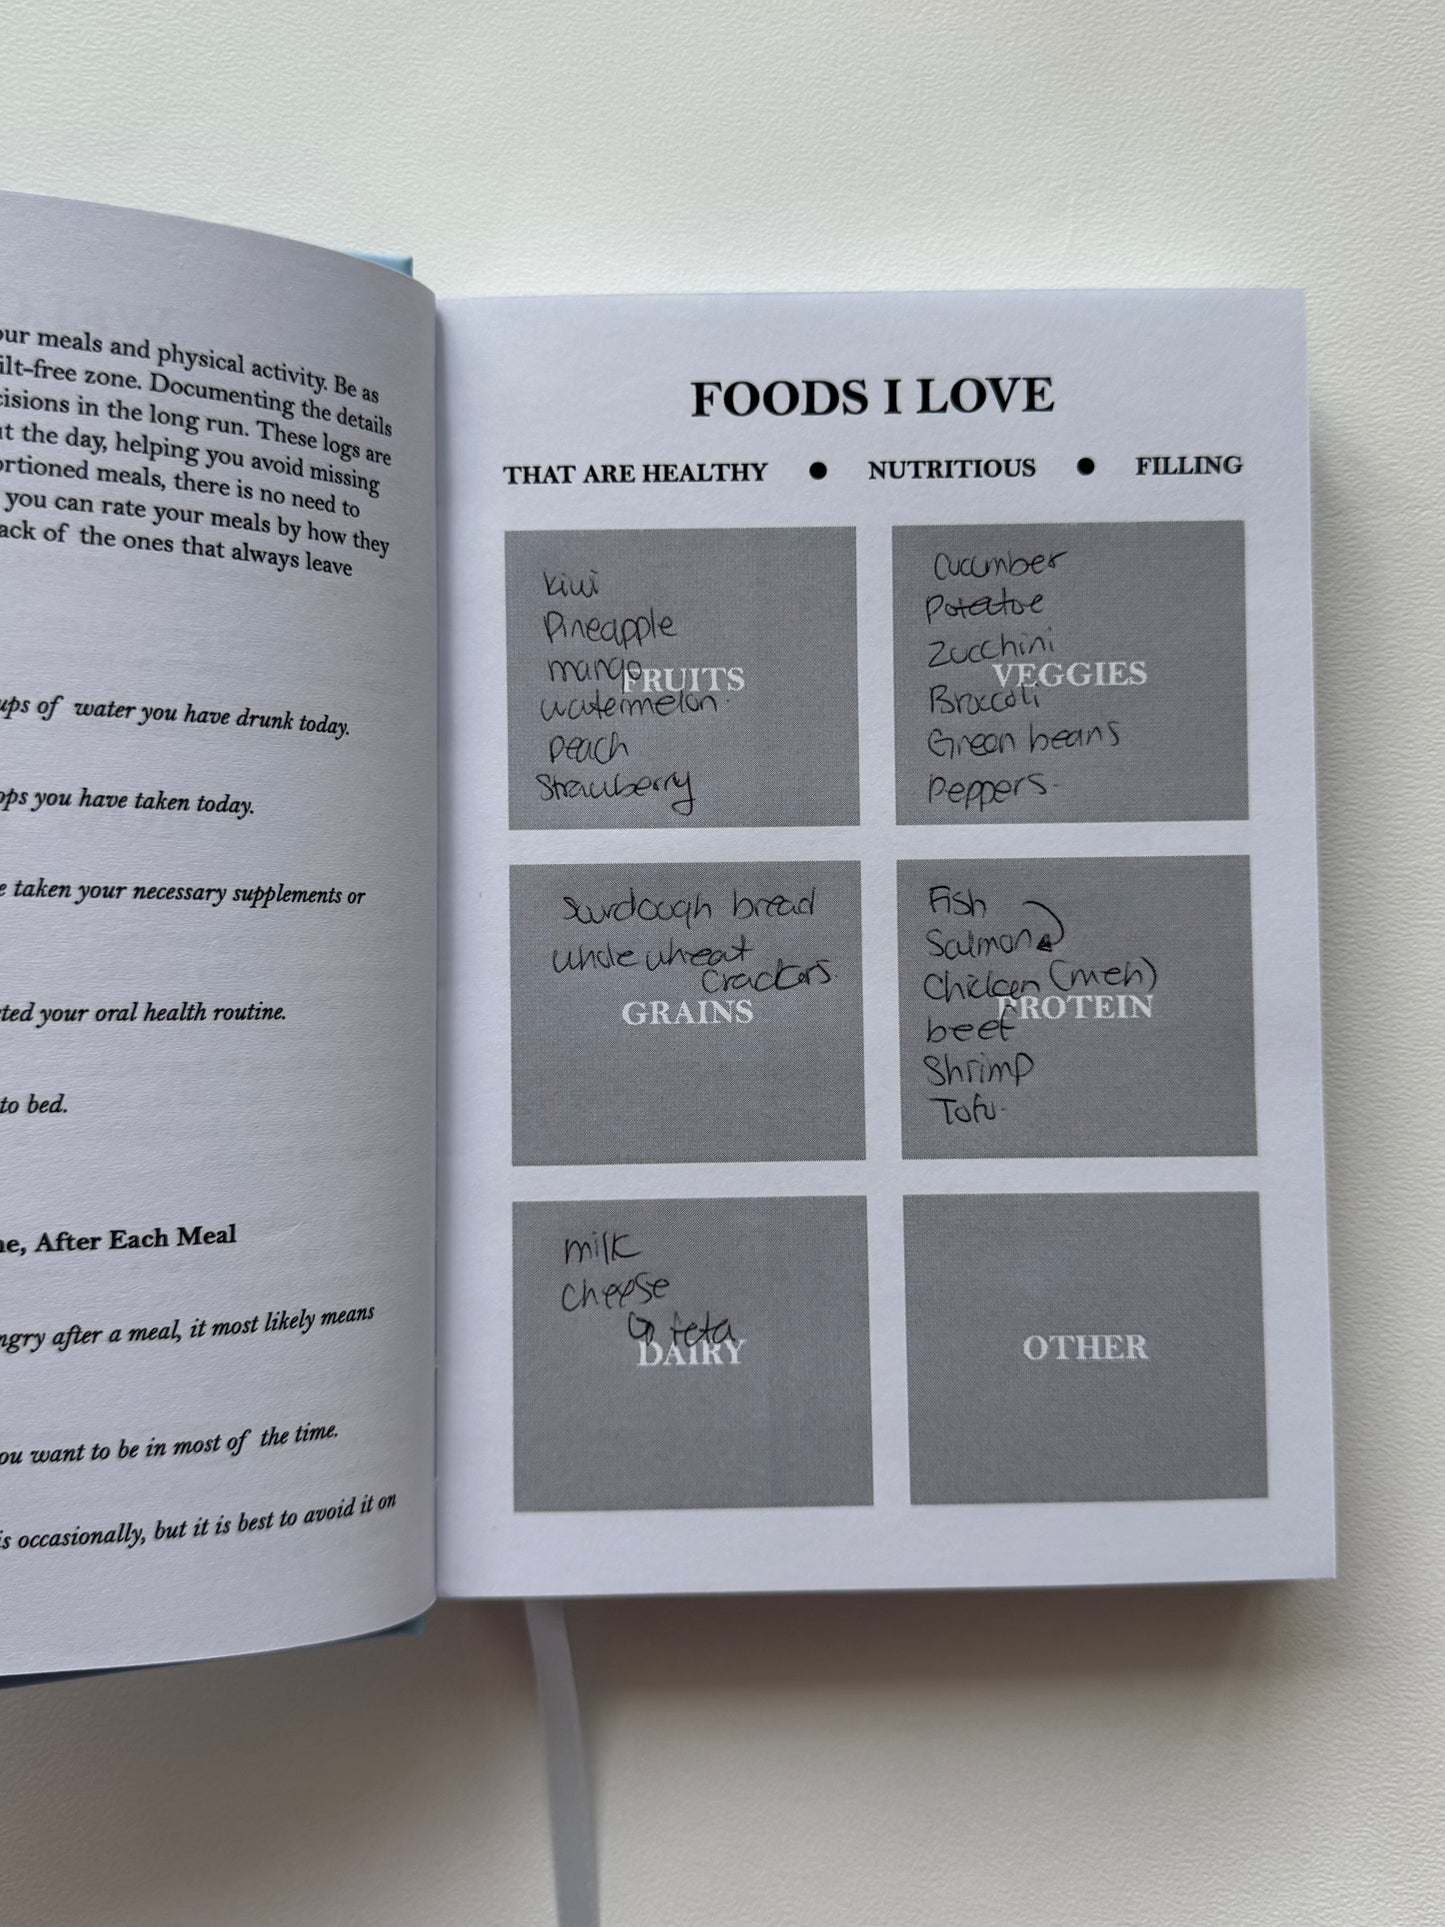 our meals and physical activity. Be as
ilt-free zone. Documenting the details
cisions in the long run. These logs are
ut the day, helping you avoid missing
ortioned meals, there is no need to
you can rate your meals by how they
ack of the ones that always leave
ups of water you have drunk today.
ops you have taken today.
e taken your necessary supplements or
ted your oral health routine.
to bed.
ne, After Each Meal
ngry after a meal, it most likely means
ou want to be in most of the time.
is occasionally, but it is best to avoid it on
FOODS I LOVE
THAT ARE HEALTHY ● NUTRITIOUS ● FILLING
kiwi
Pineapple
mango
FRUITS
watermelon.
peach
Strawberry
Cucumber
Potatoe
Zucchini
VEGGIES
Broccoli
Green beans
Peppers.
Sourdough bread
whole wheat
crackers.
GRAINS
Fish
Salmon
Chicken (meh)
PROTEIN
beef
Shrimp
Tofu.
milk
cheese
feta
DAIRY
OTHER